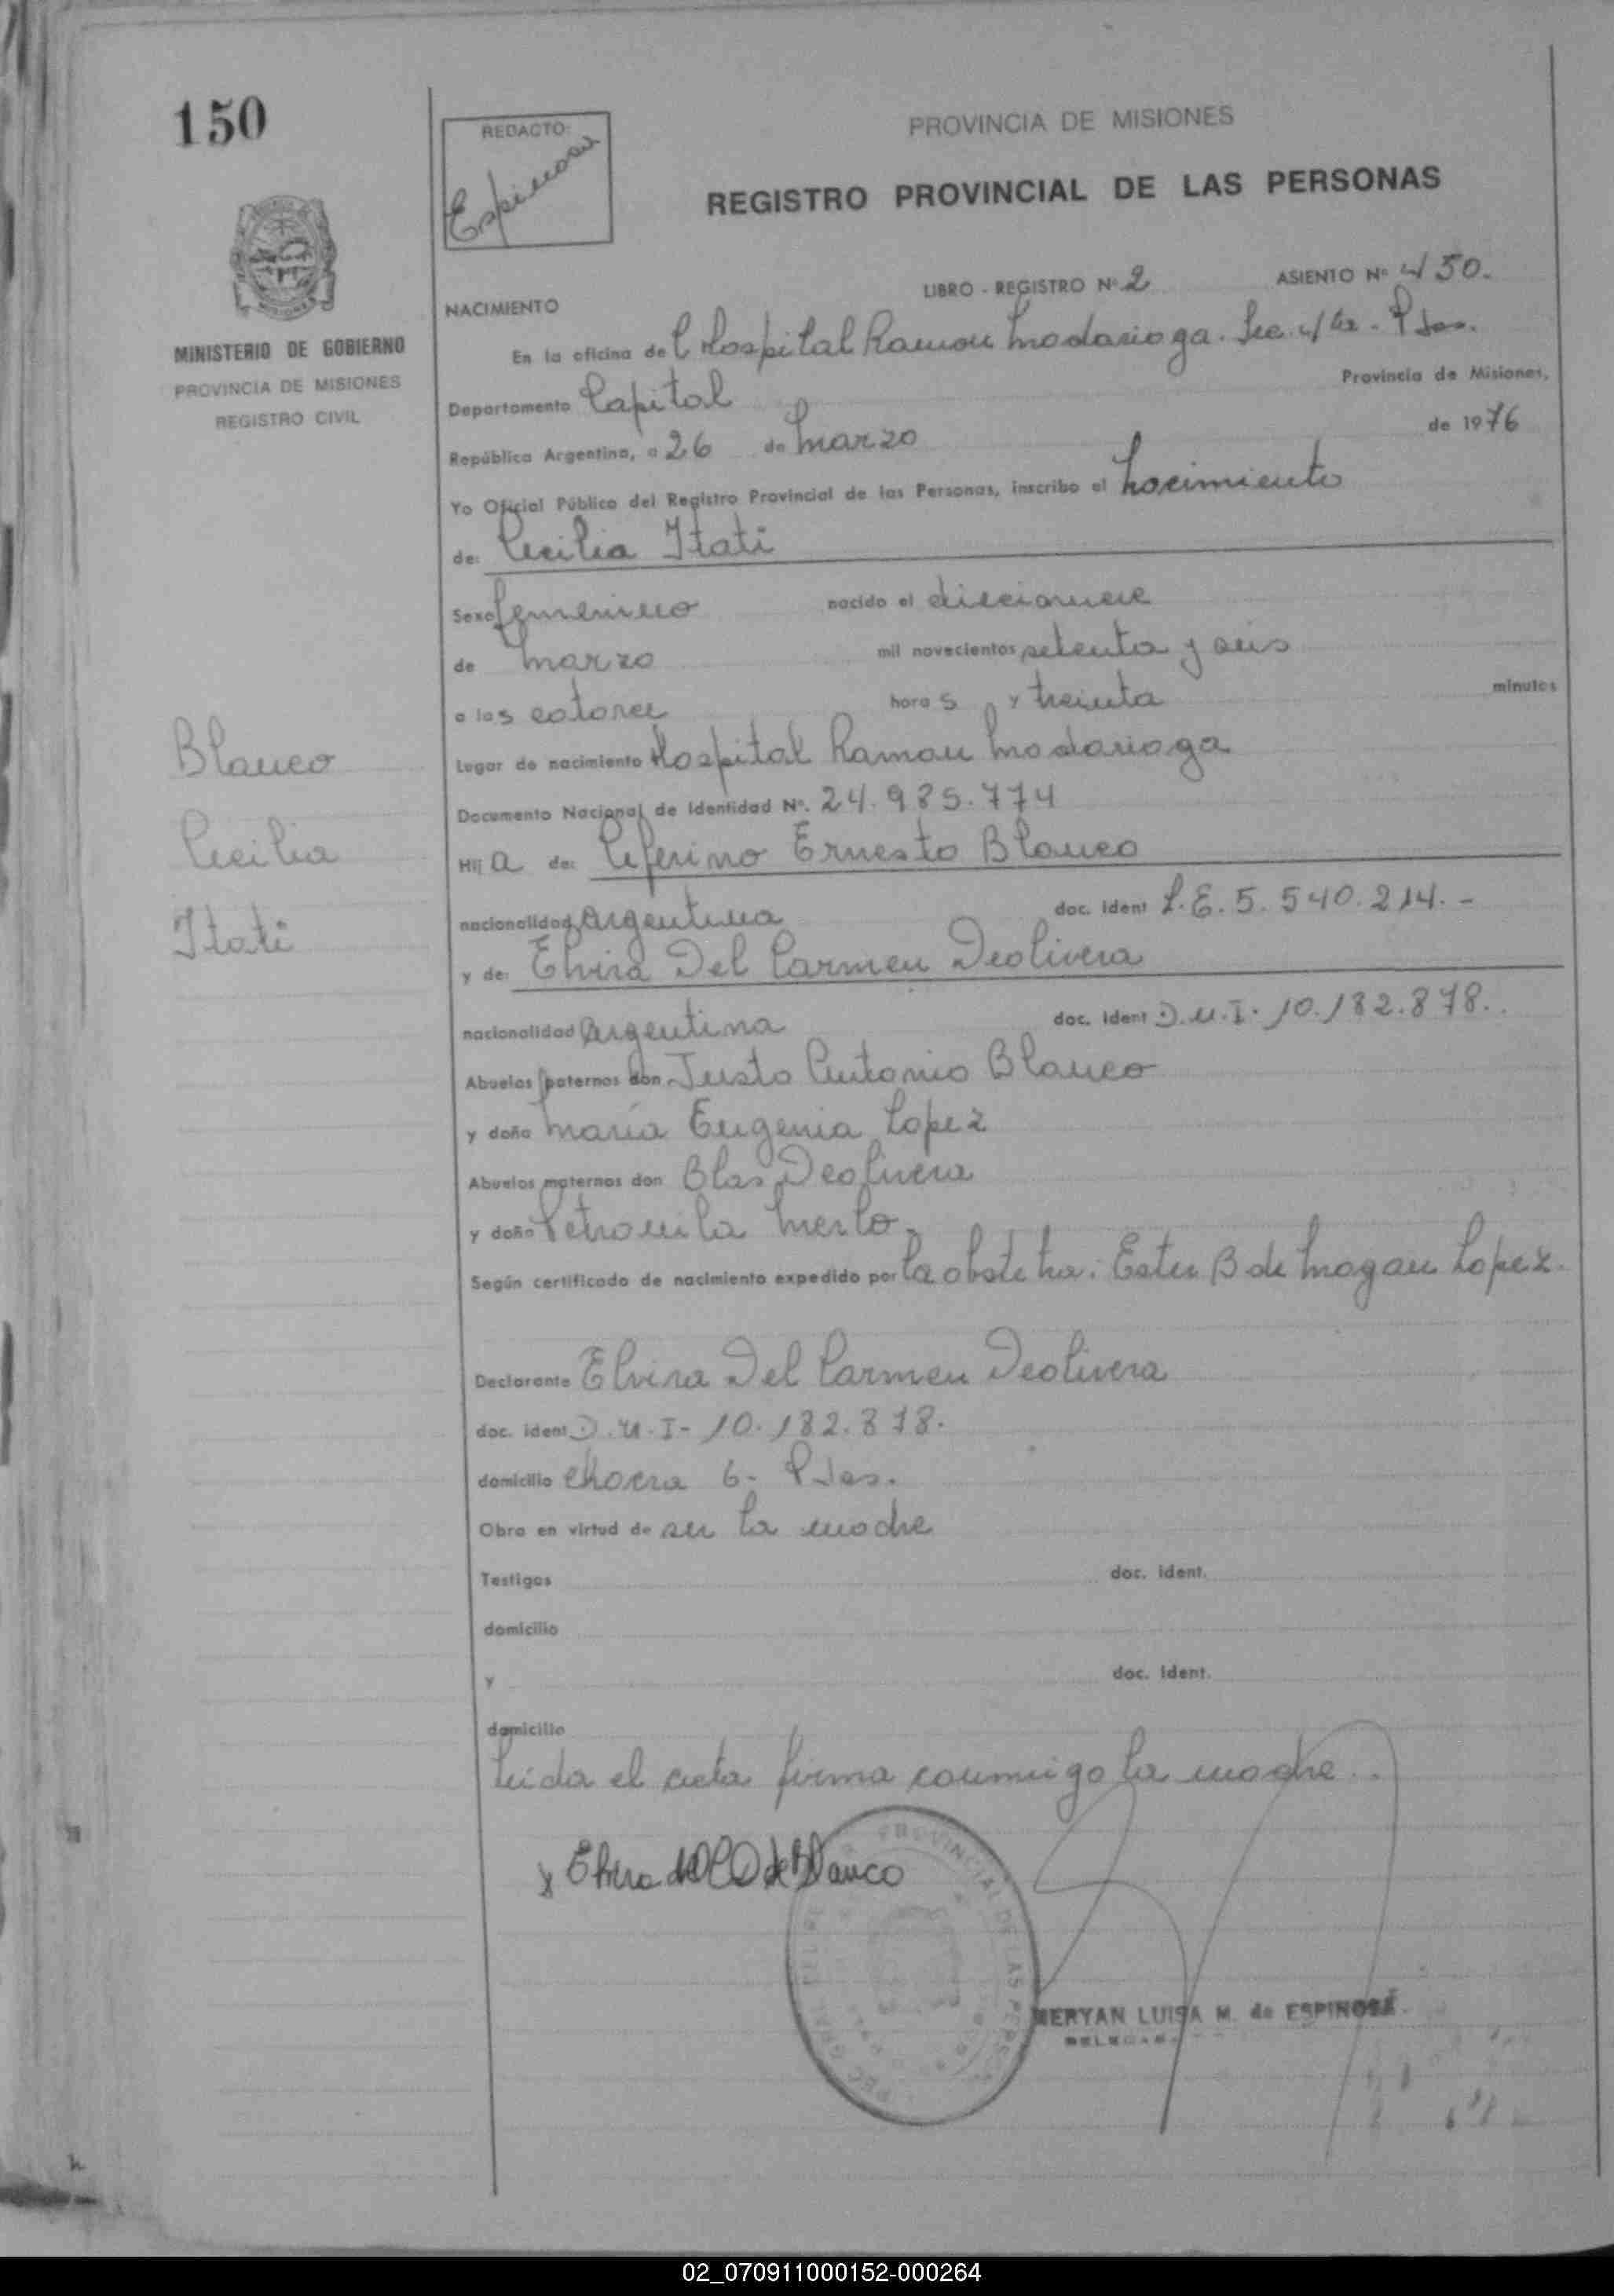 150
REDACTO:
Espinosa
PROVINCIA DE MISIONES
REGISTRO PROVINCIAL DE LAS PERSONAS
MISIONES
MINISTERIO DE GOBIERNO
PROVINCIA DE MISIONES
REGISTRO CIVIL
LIBRO - REGISTRO Nº 2 ASIENTO Nº 450.
NACIMIENTO
En la oficina del Hospital Ramon Madariaga. Sec. 4ta. Pdas.
Departamento Capital Provincia de Misiones,
República Argentina, a 26 de Marzo de 1976
Yo Oficial Público del Registro Provincial de las Personas, inscribo el nacimiento
de: Cecilia Itati
Sexo femenino nacido el diecinueve
de marzo mil novecientos setenta y seis
a las catorce horas y treinta minutos
Lugar de nacimiento Hospital Ramon Madariaga
Documento Nacional de Identidad Nº. 24.985.774
Hija de: Ceferino Ernesto Blanco
nacionalidad argentina doc. ident L.E. 5.540.214.-
y de: Elvira Del Carmen Deolivera
nacionalidad argentina doc. ident D.N.I. 10.182.878.
Abuelos paternos don Justo Antonio Blanco
y doña Maria Eugenia Lopez
Abuelos maternos don Blas Deolivera
y doña Petronila Merlo.
Según certificado de nacimiento expedido por la obstetra: Ester B de Magan Lopez.
Blanco
Cecilia
Itati
Declarante Elvira Del Carmen Deolivera
doc. ident D.N.I- 10.182.878.
domicilio chacra 6- Pdas.
Obra en virtud de ser la madre
Testigos doc. ident.
domicilio
y doc. ident.
domicilio
Leida el acta firma conmigo la madre..
x Elvira del C D de Blanco
PROVINCIAL DE LAS PERSONAS
MERYAN LUISA M. de ESPINOSA
02_070911000152-000264